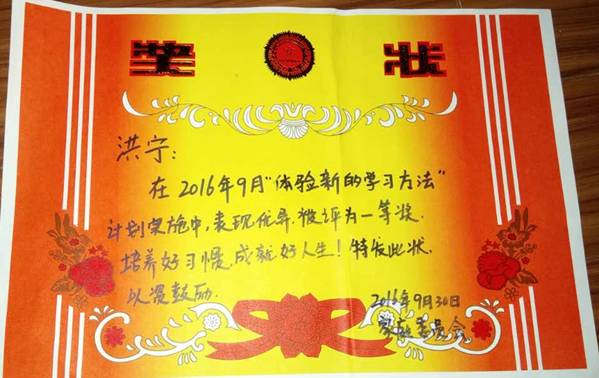 奖状
洪宁：
在2016年9月"体验新的学习方法"
计划实施中，表现优异，被评为一等奖．
培养好习惯，成就好人生！特发此状．
以资鼓励．
2016年9月30日
家庭委员会